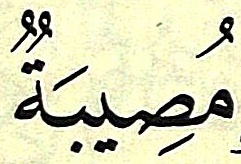 مُصِيبَةٌ